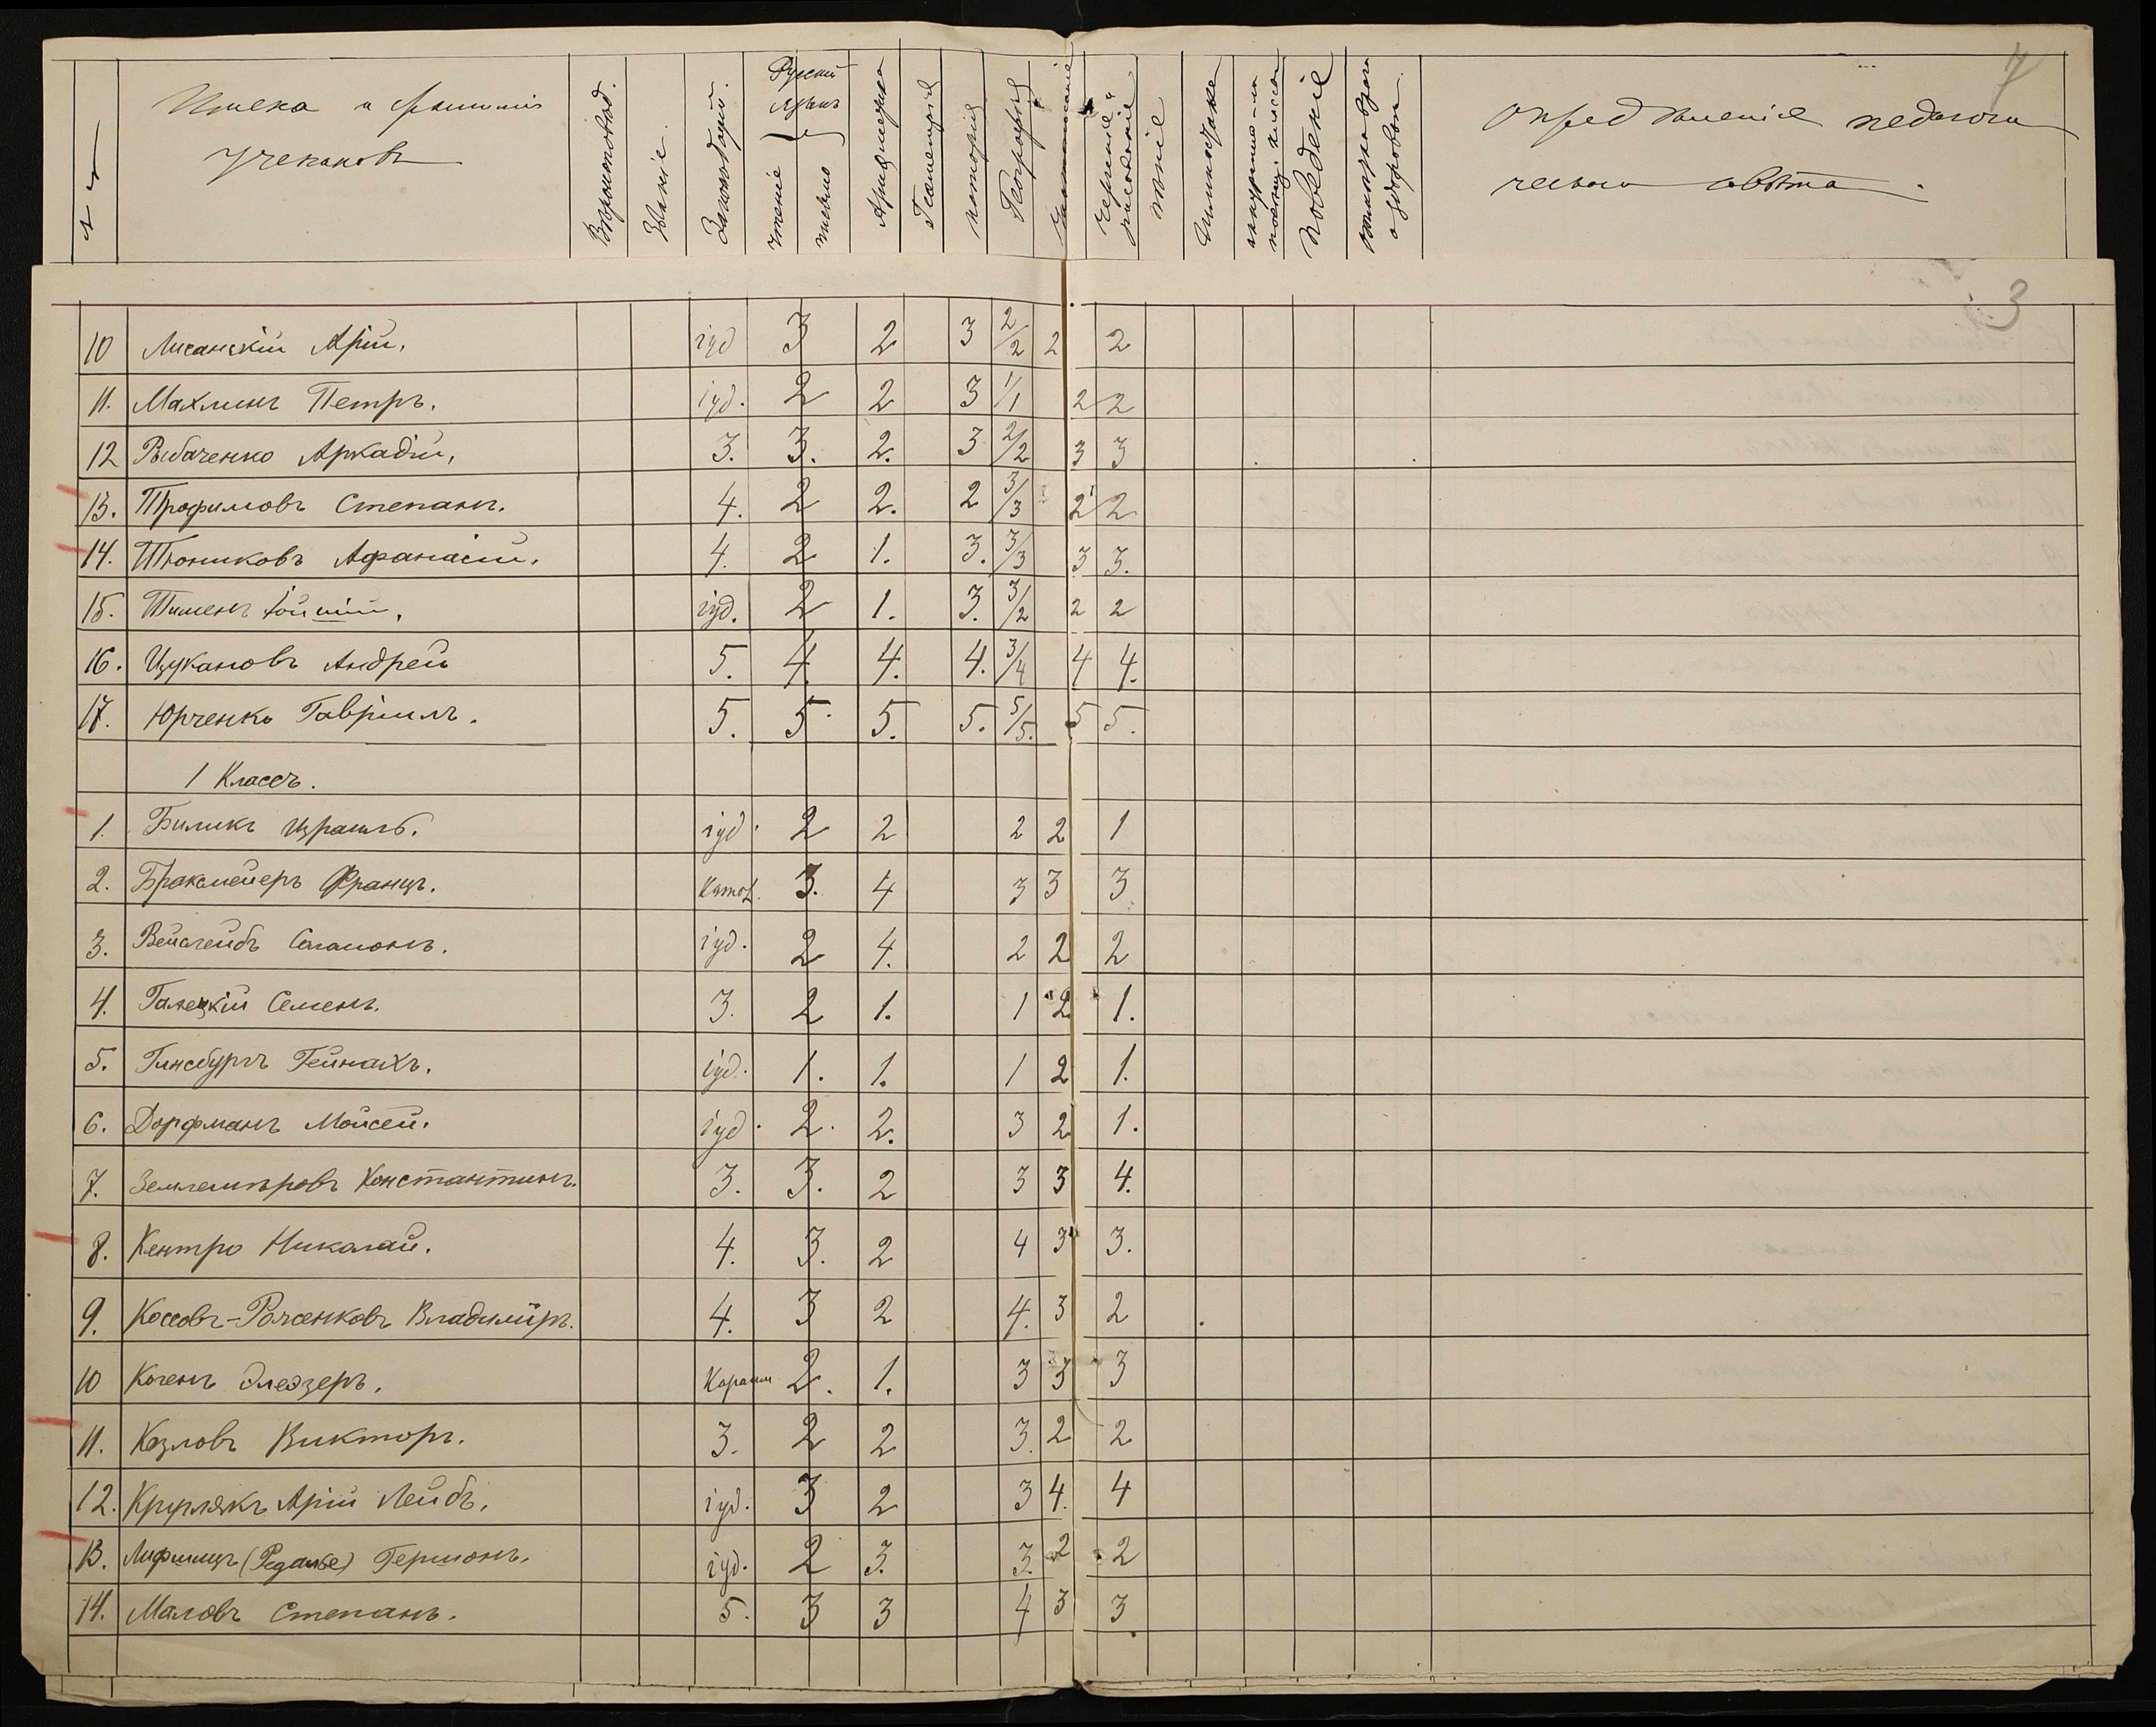 №
Имена и фамиліи
учениковъ
Вѣроисповѣд.
Званіе.
Законъ Божій.
Русскій
языкъ
чтеніе
письмо
Ариѳметика
Геометрія
исторія
Географія
черченіе и
рисованіе
пѣніе
Гимнастика
Поведеніе
Опредѣленіе педагоги
ческаго совѣта.
7
3
10 Лисанскій Арій. іуд 3 2 3 2/2 2 2
11. Махлинъ Петръ. іуд. 2 2 3 1/1 2 2
12 Рыбаченко Аркадій. 3. 3. 2. 3 2/2 3 3
13. Трофимовъ Степанъ. 4. 2 2. 2 3/3 2 2
14. Тюниковъ Афанасій. 4. 2 1. 3. 3/3 3 3.
15. іуд. 2 1. 3. 3/2 2 2
16. Цукановъ Андрей 5. 4. 4. 4. 3/4 4 4.
17. Юрченко Гавріилъ. 5. 5. 5. 5. 5/5. 5 5.
1 Классъ.
1. Биликъ Израиль. іуд. 2 2 2 2 1
2. Браксмейеръ Францъ. Катол. 3. 4 3 3 3
3. Вейсгейбъ Соломонъ. іуд. 2 4. 2 2 2
4. Галецкій Семенъ. 3. 2 1. 1 2 1.
5. Гинсбургъ Гейнахъ. іуд. 1. 1. 1 2 1.
6. Дорфманъ Мойсей. іуд. 2. 2. 3 2 1.
7. Землемѣровъ Константинъ. 3. 3. 2 3 3 4.
8. Кентро Николай. 4. 3. 2 4 3 3.
9. Коссовъ-Рыженковъ Владиміръ. 4. 3 2 4. 3 2
10 Когенъ Элеазеръ. Караим 2. 1. 3 3 3
11. Козловъ Викторъ. 3. 2 2 3. 2 2
12. Круглякъ Арій Лейбъ. іуд. 3 2 3 4. 4
13. Лифшицъ Гершонъ. іуд. 2 3. 3. 2 2
14. Маловъ Степанъ. 5. 3 3 4 3 3